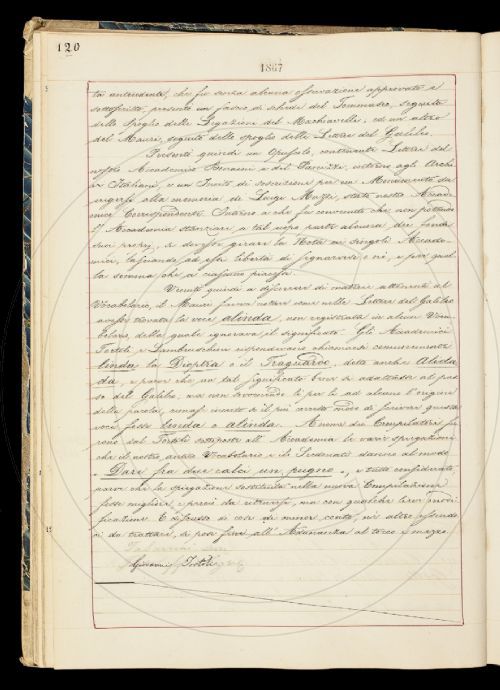 120
1867
ta antecedente, che fu senza alcuna osservazione approvata e
sottoscritta, presentò un fascio di schede del Tommaseo, seguito
dello Spoglio delle Legazioni del Machiavelli, ed un altro
del Mauri, seguito dello spoglio delle Lettere del Galileo.
Presentò quindi un Opuscolo, contenente Lettere del
nostro Accademico Bonaini e del Panizzi, intorno agli Archi-
vi Italiani, e un Invito di soscrizione per un Monumento da
erigersi alla memoria di Luigi Muzzi, stato nostro Accade-
mico Corrispondente. Intorno a che fu convenuto che non potendo
l'Accademia stanziare a tal uopo parte alcuna dei fondi
suoi propri, si dovesse girare la Nota ai singoli Accade-
mici, lasciando ad essi libertà di segnarvisi o no, e per quel-
la somma che a ciascuno piacesse.
Venuti quindi a discorrere di materie attinenti al
Vocabolario, il Mauri faceva notare come nelle Lettere del Galileo
avesse trovata la voce alinda, non registrata in alcun Voca-
bolario, della quale ignorava il significato. Gli Accademici
Tortoli e Lambruschini rispondevano chiamarsi comunemente
linda, la Dioptra o il Traguardo, detta anche Alida-
da, e parve che un tal significato bene si adattasse al pas-
so del Galileo, ma non trovandosi lì per lì ad alcuno l'origine
della parola, rimase incerto se il più corretto modo di scrivere questa
voce fosse linda o alinda. A nome dei Compilatori fu-
rono dal Tortoli sottoposte all'Accademia le varie spiegazioni
che il nostro antico Vocabolario e il Sessennati davano al modo
"Dare fra due calci un pugno", e tutto considerato,
parve che la spiegazione sostituita nella nuova Compilazione
fosse migliore, e perciò da ritenersi, ma con qualche lieve modi-
ficazione. E discusso di cose di minor conto, nè altro essendo-
vi da trattare, si pose fine all'Adunanza al tocco e mezzo.
Giovanni Tortoli